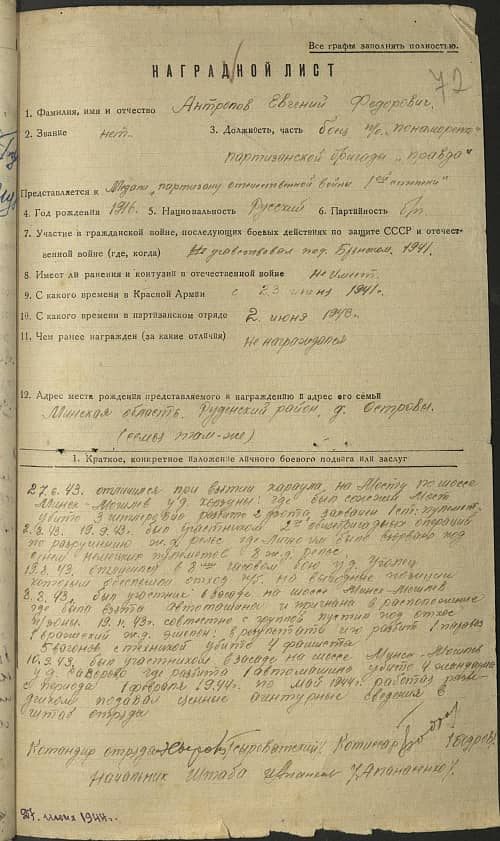 Все графы заполнять полностью.
НАГРАДНОЙ ЛИСТ
72
1. Фамилия, имя и отчество Антропов Евгений Федорович.
2. Звание нет. 3. Должность, часть боец п/о „Пономоренко"
партизанской бригады „Правда"
Представляется к Медали „партизану отечественной войны 1ой степени"
4. Год рождения 1916. 5. Национальность Русский 6. Партийность б/п.
7. Участие в гражданской войне, последующих боевых действиях по защите СССР и отечест-
венной войне (где, когда) 1941.
8. Имеет ли ранения и контузии в отечественной войне не имеет.
9. С какого времени в Красной Армии с 23 июня 1941г.
10. С какого времени в партизанском отряде 2 июня 1943г.
11. Чем ранее награжден (за какие отличия) не награждался
12. Адрес места рождения представляемого к награждению и адрес его семьи
Минская область, Руденский район, д. Островы.
(семья там-же)
1. Краткое, конкретное изложение личного боевого подвига или заслуг
27.6.43. отличился при взятии караула, на Мосту по шоссе
Минск-Могилев у д. где был сожжен мост
убито 3 гитлеровца разбито 2 захвачен 1 ст. пулемет.
2.8.43. 19.9.43. был участником 2х операций
по разрушению ж.д. рельс где лично им было взорвано под
огнем немецких пулеметов 8 ж.д. рельс.
19.8.43. отличился в 3 часовом бою у д. Уголец
которым обеспечил отход п/о. на выгодные позиции
8.8.43. был участник в засаде на шоссе Минск-Могилев
где была взята автомашина и пригнана в расположение
п/зоны. 19.11.43. совместно с группой пустил под откос
1 вражеский ж.д. эшелон: в результате чего разбит 1 паровоз
5 вагонов с техникой убито 4 фашиста
10.9.43. был участником в засаде на шоссе Минск-Могилев
у д. где разбита 1 автомашина убито 4 жандарма
в период с 1 февраля 1944. по май 1944г. работая разве-
дчиком подавал ценные агентурные сведения в
штаб отряда
Командир отряда /Сыроватский/ Комиссар /Бодров/
Начальник Штаба /Апанасенко/.
27. июня 1944г.